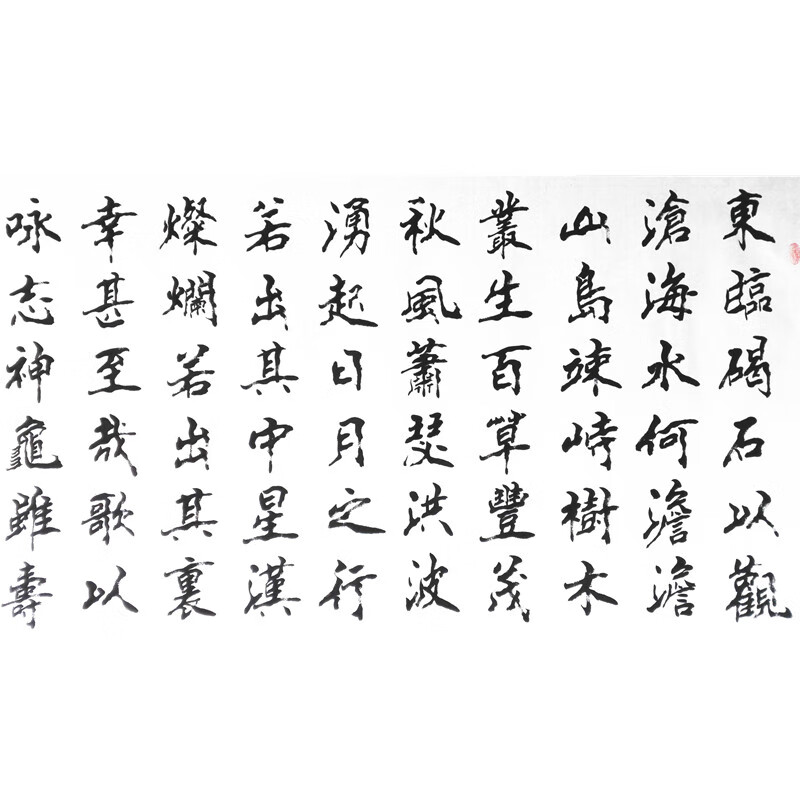 東臨碣石以觀
滄海水何澹澹
山島竦峙樹木
叢生百草豐茂
秋風蕭瑟洪波
湧起日月之行
若出其中星漢
燦爛若出其裏
幸甚至哉歌以
咏志神龜雖壽